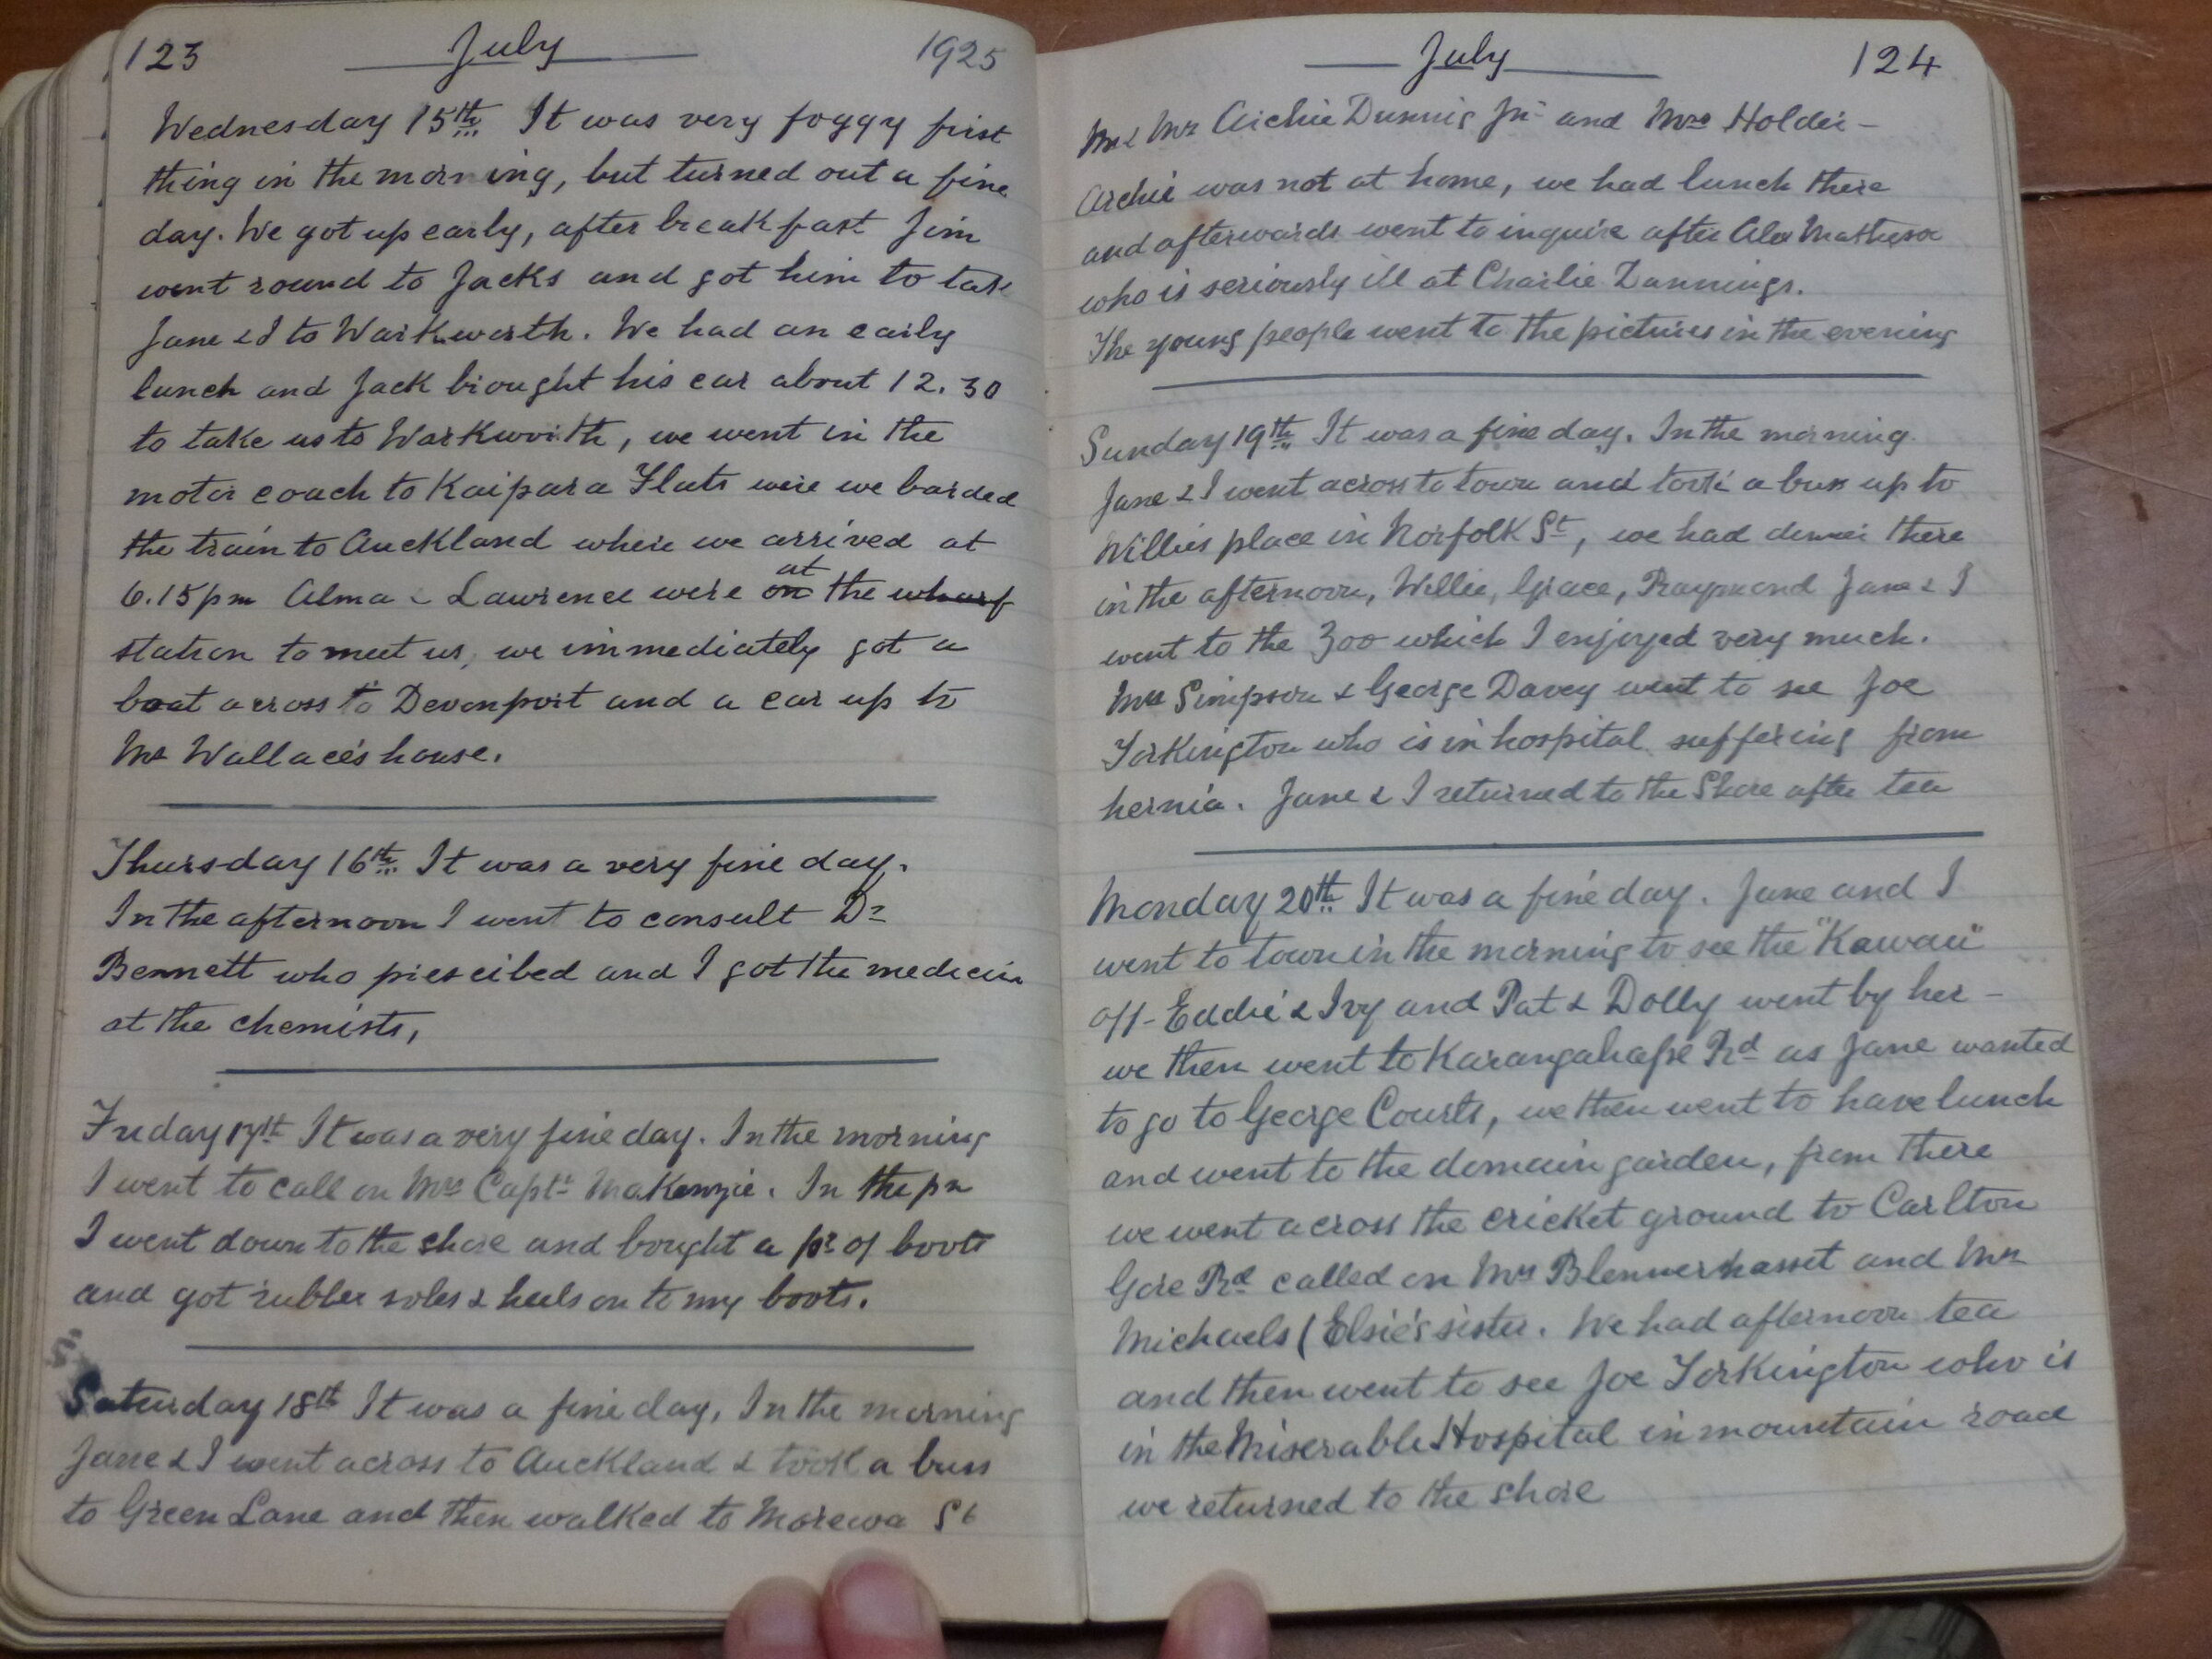 123 July 1925
Wednesday 15th It was very foggy first
thing in the morning, but turned out a fine
day. We got up early, after breakfast Jim
went round to Jacks and got him to take
Jane & I to Warkworth. We had an early
lunch and Jack brought his car about 12.30
to take us to Warkworth, we went in the
motor coach to Kaipara Flats were we barded
the train to Auckland where we arrived at
6.15pm Alma & Lawrence were on at the wharf
station to meet us, we immediately got a
boat across to Devonport and a car up to
Mr Wallace's house.
Thursday 16th It was a very fine day.
In the afternoon I went to consult Dr
Bennett who prescibed and I got the medecin
at the chemists,
Friday 17th It was a very fine day. In the morning
I went to call on Mrs Captn MaKenzie. In the pm
I went down to the shore and bought a pr of boots
and got rubber soles & heels on to my boots.
Saturday 18th It was a fine day, In the morning
Jane & I went across to Auckland & took a buss
to Green Lane and then walked to Morewa St
July 124
Mr & Mrs Archie Dunnig Jnr and Mrs Holder -
Archie was not at home, we had lunch there
and afterwards went to inquire after Alex Matheson
who is seriously ill at Charlie Dunnings.
The young people went to the pictures in the evening
Sunday 19th It was a fine day. In the morning
Jane & I went across to town and took a bus up to
Willies place in Norfolk St, we had dinner there
in the afternoon, Willie, Grace, Raymond Jane & I
went to the Zoo which I enjoyed very much.
Mrs Simpson & George Davey went to see Joe
Torkington who is in hospital suffering from
hernia. Jane & I returned to the Shore after tea
Monday 20th It was a fine day. Jane and I
went to town in the morning to see the "Kawau"
off - Eddie & Ivy and Pat & Dolly went by her -
we then went to Karangahape Rd as Jane wanted
to go to George Courts, we then went to have lunch
and went to the domain garden, from there
we went across the cricket ground to Carlton
Gore Rd called on Mrs Blennerhasset and Mrs
Michaels (Elsie's sister. We had afternoon tea
and then went to see Joe Torkington who is
in the Miserable Hospital in mountain road
we returned to the shore